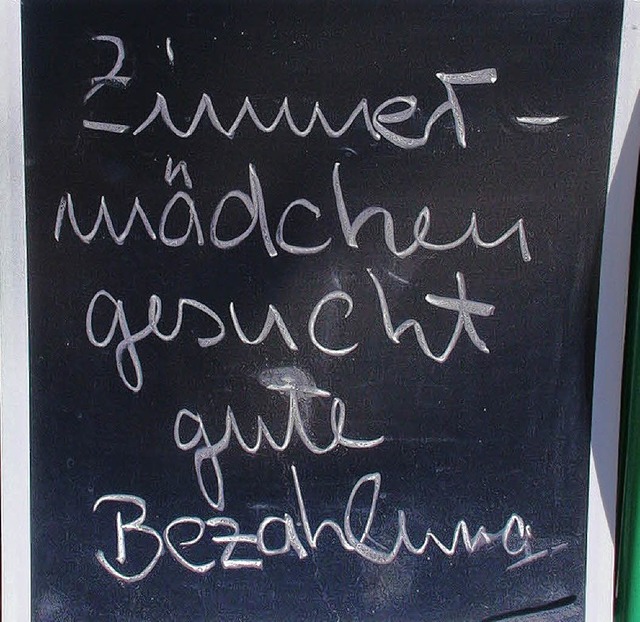 Zimmer-
mädchen
gesucht
gute
Bezahlung